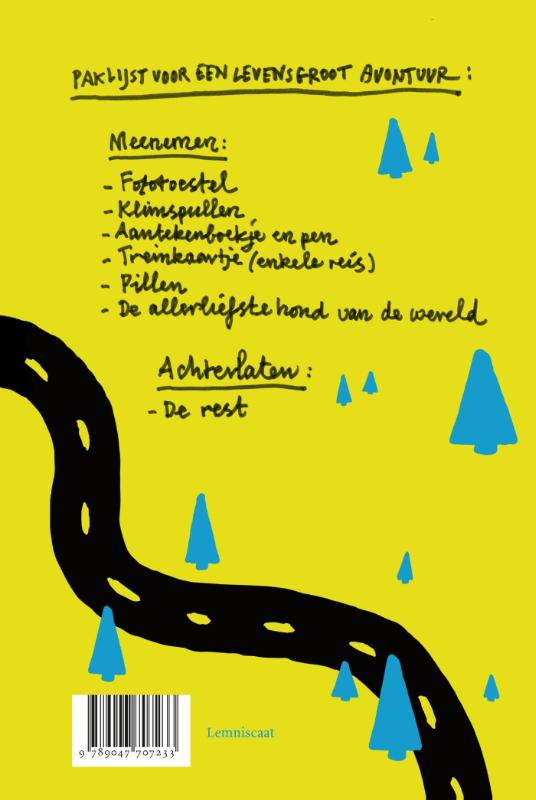 PAKLIJST VOOR EEN LEVENSGROOT AVONTUUR :
Meenemen:
- Fototoestel
- Klimspullen
- Aantekenboekje en pen
- Treinkaartje (enkele reis)
- Pillen
- De allerliefste hond van de wereld
Achterlaten :
- De rest
Lemniscaat
9 789047 707233